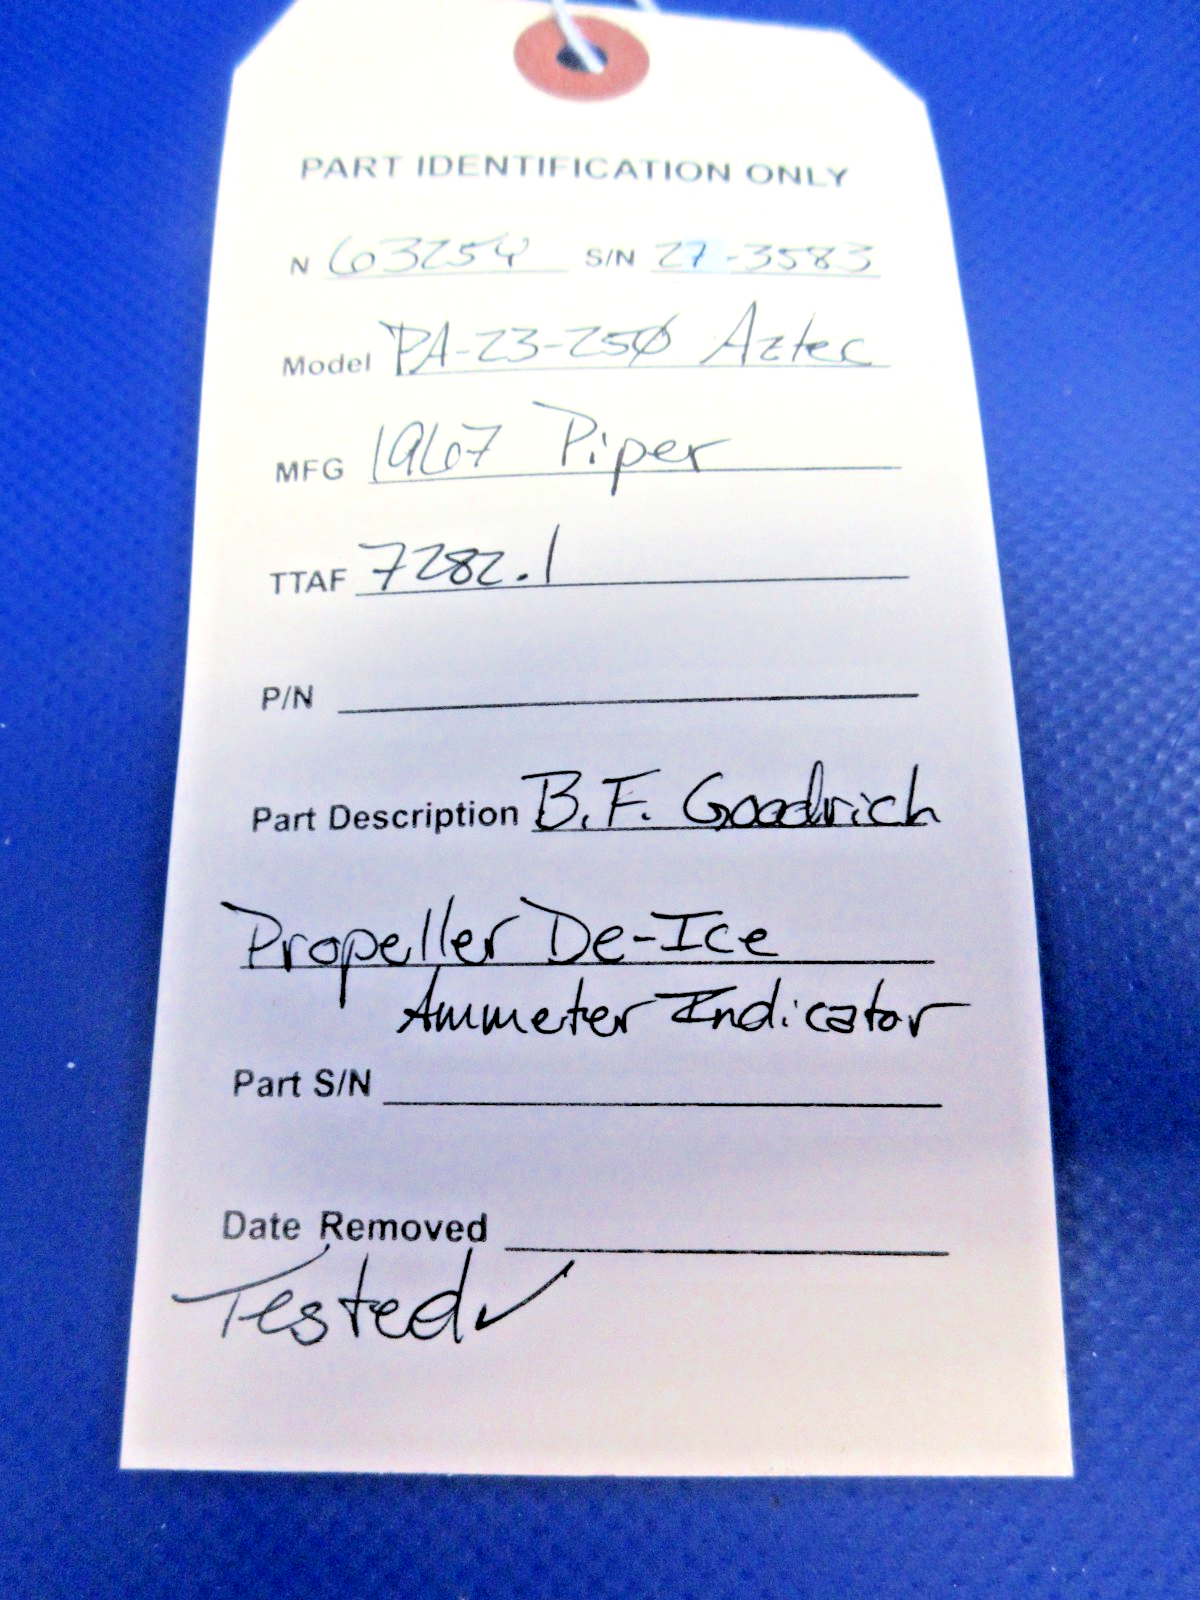 PART IDENTIFICATION ONLY
N 63254 S/N 27-3583
Model PA-23-250 Aztec
MFG 1967 Piper
TTAF 7282.1
P/N
Part Description B.F. Goodrich
Propeller De-Ice
Ammeter Indicator
Part S/N
Date Removed
Tested ✓